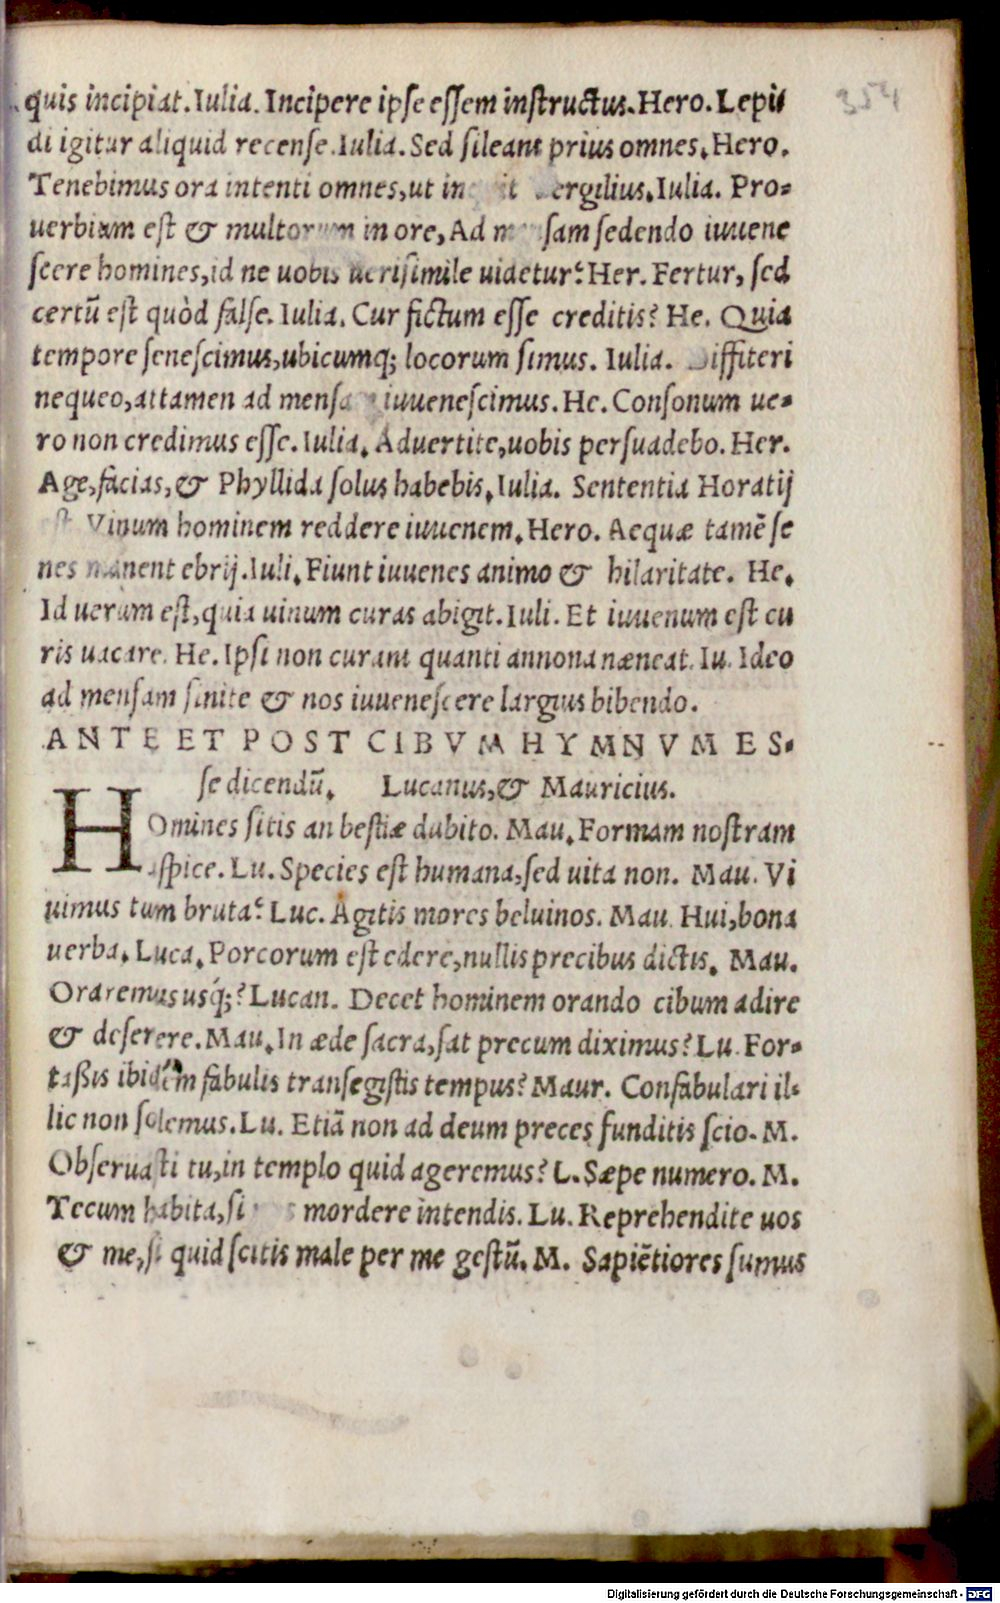 quis incipiat. Iulia. Incipere ipſe eſſem inſtructus. Hero. Lepi
di igitur aliquid recense. Iulia. Sed ſileant prius omnes. Hero.
Tenebimus ora intenti omnes, ut Vergilius. Iulia. Pro⸗
uerbium eſt & multorum in ore, Ad menſam ſedendo iuuene
ſcere homines, id ne uobis ueriſimile uidetur? Her. Fertur, ſed
certū eſt quòd falſe. Iulia. Cur fictum eſſe creditis? He. Quia
tempore ſeneſcimus, ubicumq; locorum ſimus. Iulia. Diffiteri
nequeo, attamen ad menſam iuueneſcimus. He. Conſonum ue⸗
ro non credimus eſſe. Iulia. Aduertite, uobis perſuadebo. Her.
Age, facias, & Phyllida ſolus habebis. Iulia. Sententia Horatij
eſt Vinum hominem reddere iuuenem. Hero. Aequæ tamē ſe
nes manent ebrij. Iuli. Fiunt iuuenes animo & hilaritate. He.
Id uerum eſt, quia uinum curas abigit. Iuli. Et iuuenum eſt cu
ris uacare. He. Ipſi non curant quanti annona næneat. Iu. Ideo
ad menſam ſinite & nos iuueneſcere largius bibendo.
ANTE ET POST CIBVM HYMNVM ES⸗
ſe dicendū. Lucanus, & Mauricius.
HOmines ſitis an beſtiæ dubito. Mau. Formam noſtram
aſpice. Lu. Species eſt humana, ſed uita non. Mau. Vi
uimus tum bruta? Luc. Agitis mores beluinos. Mau. Hui, bona
uerba. Luca. Porcorum eſt edere, nullis precibus dictis. Mau.
Oraremus usq́;? Lucan. Decet hominem orando cibum adire
& deſerere. Mau. In æde ſacra, ſat precum diximus? Lu. For⸗
taßis ibidem fabulis tranſegiſtis tempus? Maur. Confabulari il⸗
lic non ſolemus. Lu. Etiā non ad deum preces funditis ſcio. M.
Obſeruaſti tu, in templo quid ageremus? L. Sæpe numero. M.
Tecum habita, ſi mordere intendis. Lu. Reprehendite uos
& me, ſi quid ſcitis male per me geſtū. M. Sapiētiores ſumus
Digitalisierung gefördert durch die Deutsche Forschungsgemeinschaft - DFG